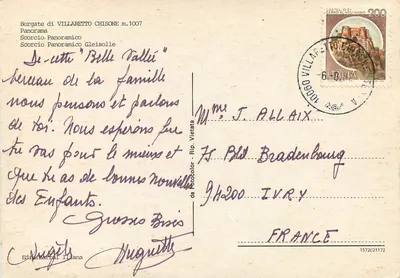 Borgate di VILLARETTO CHISONE m. 1007
Panorama
Scorcio Panoramico
Scorcio Panoramico Gleisolle
De cette "Belle Vallée"
berceau de la famille
nous pensons et parlons
de toi. Nous espérons que
tu vas pour le mieux et
que tu as de bonnes nouvelles
des Enfants.
Grosses Bises
Angèle Huguette
200
10060 VILLARETTO
Rip. Vietata
Mme J. ALLAIX
75 Bld Brandenbourg
94200 IVRY
FRANCE